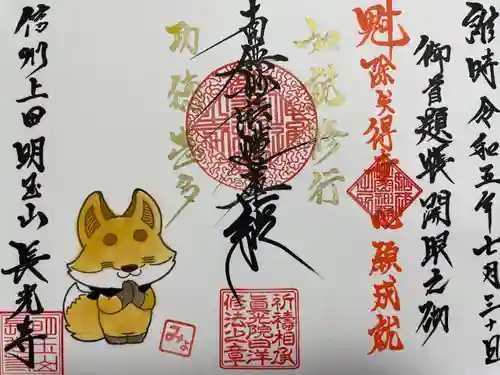 維時令和五年七月三十日
御首題帳開眼之砌
魁 除災得幸心願成就
如説修行
南無妙法蓮華経
功徳甚多
祈祷相承
修法之章
みよ
信州上田明玉山長光寺